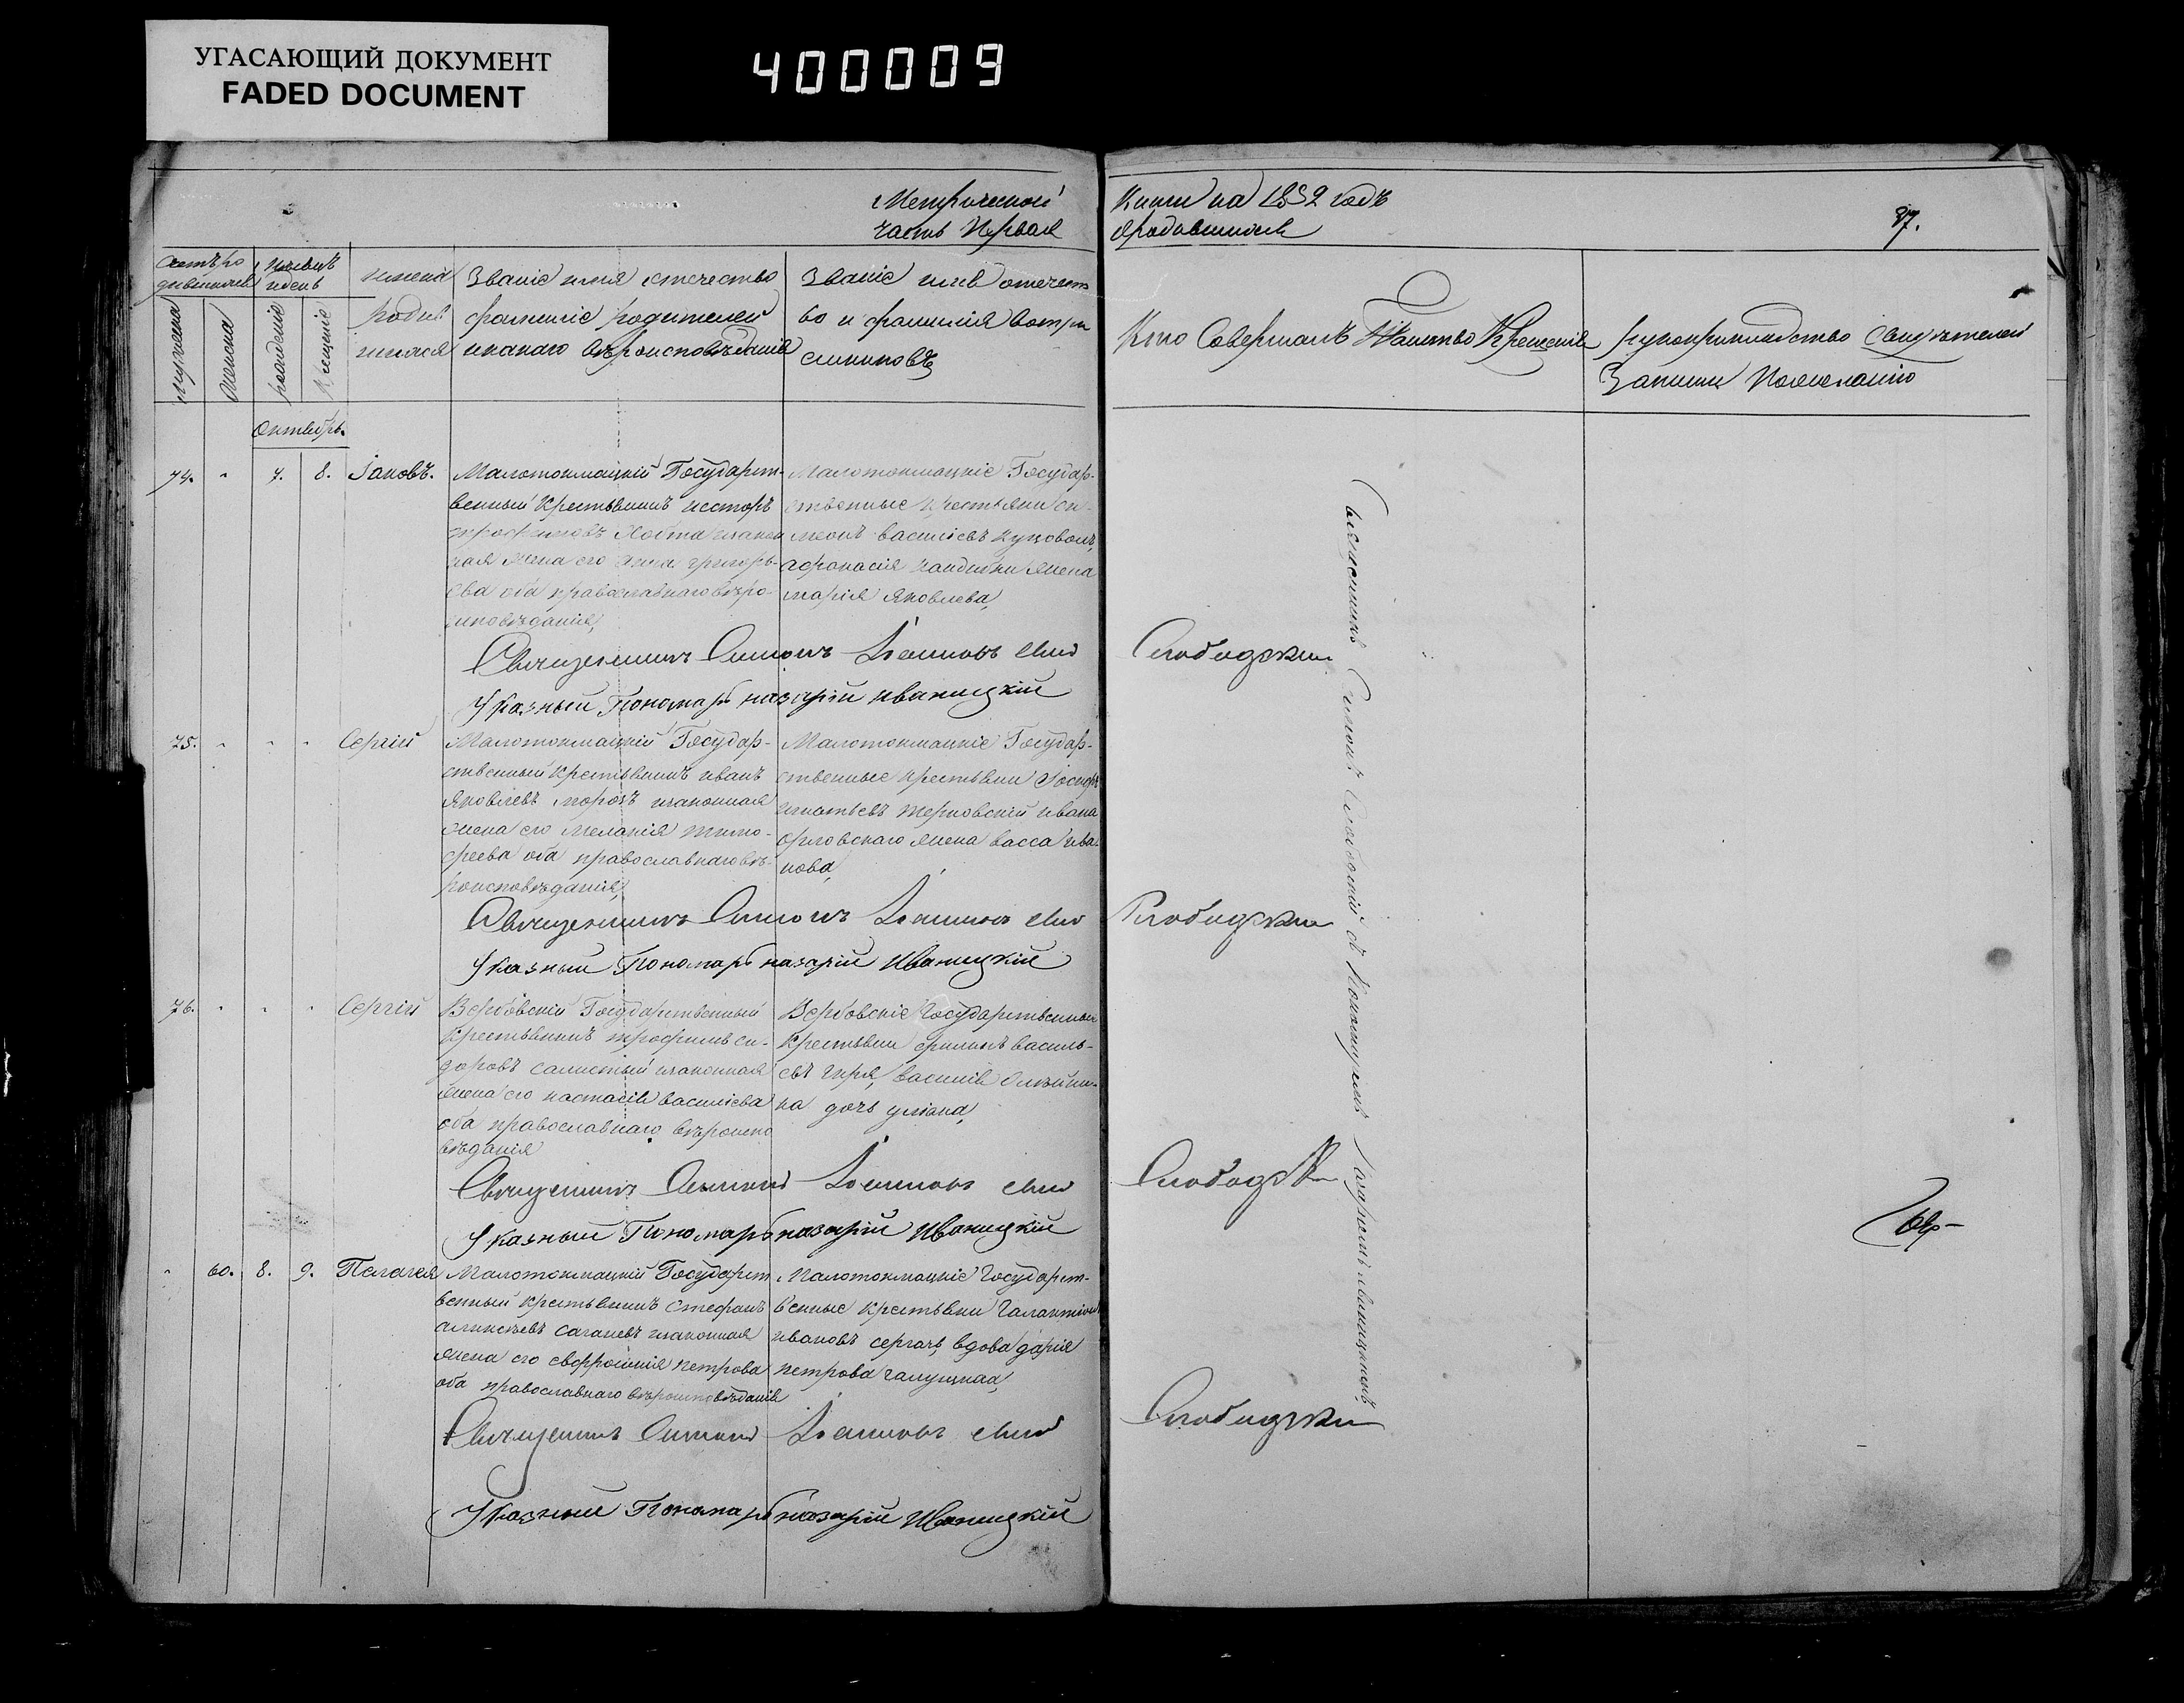 УГАСАЮЩИЙ ДОКУМЕНТ
FADED DOCUMENT
400009
Метрической
Книги на 1852 годъ
часть Первая
о родившихся
37.
Счетъ ро
дившихся
мужеска
женска
Мѣсяцъ
и день
рожденія
крещенія
имена
родив
шихся
Званіе имя отечество
фамиліе родителей
и какаго вѣроисповѣданія
Званіе имя отечест
во и фамилія воспри
емниковъ
Кто Совершалъ Таинство Крещенія
рукоприкладство свидѣтелей
Записи Пожеланію
Октябрь.
74. " 7. 8. Іаковъ.
Малотокмацкій Государст-
венный крестьянинъ несторъ
трофимовъ изакон
ная жена его анна григорь-
ева оба православнаго вѣро-
исповѣданія,
Малотокмацкіе Государ-
ственные крестьяни си-
меонъ васильевъ
афанасія жена
марія яковлева,
Священникъ Симонъ Іоанновъ сынъ
Слободскій
Указный Пономарь назарій иваницкій
75. " " " Сергій
Малотокмацкій Государ-
ственный крестьянинъ иванъ
яковлевъ морозъ изаконная
жена его меланія тимо-
феева оба православнаго вѣ-
роисповѣданія,
Малотокмацкіе Государ-
ственные крестьяни Іосифъ
игнатьевъ терновскій ивана
орловскаго жена васса ива-
нова,
Священникъ Симонъ Іоанновъ сынъ
Слободскій
Указный Пономарь назарій Иваницкій
76. " " " Сергій
Вербовскій Государственный
крестьянинъ трофимъ си-
доровъ изаконная
жена его настасія васильева
оба православнаго вѣроиспо
вѣданія
Вербовскіе Государственные
крестьяни филипъ василь-
евъ гиря, василія олейни-
ка дочь уліана,
Священникъ Симонъ Іоанновъ сынъ
Слободскій
Указный Пономарь назарій Иваницкій
" 60. 8. 9. Пелагея
Малотокмацкій Государст
венный крестьянинъ стефанъ
алексѣевъ изаконная
жена его евфросинія петрова
оба православнаго вѣроисповѣданія
Малотокмацкіе Государст-
венные крестьяни Галактіонъ
ивановъ сергачъ, вдова дарія
петрова
Священникъ Симонъ Іоанновъ сынъ
Слободскій
Указный Пономарь назарій Иваницкій
Священникъ Симонъ Слободскій съ Пономаремъ Назаріемъ иваницкимъ